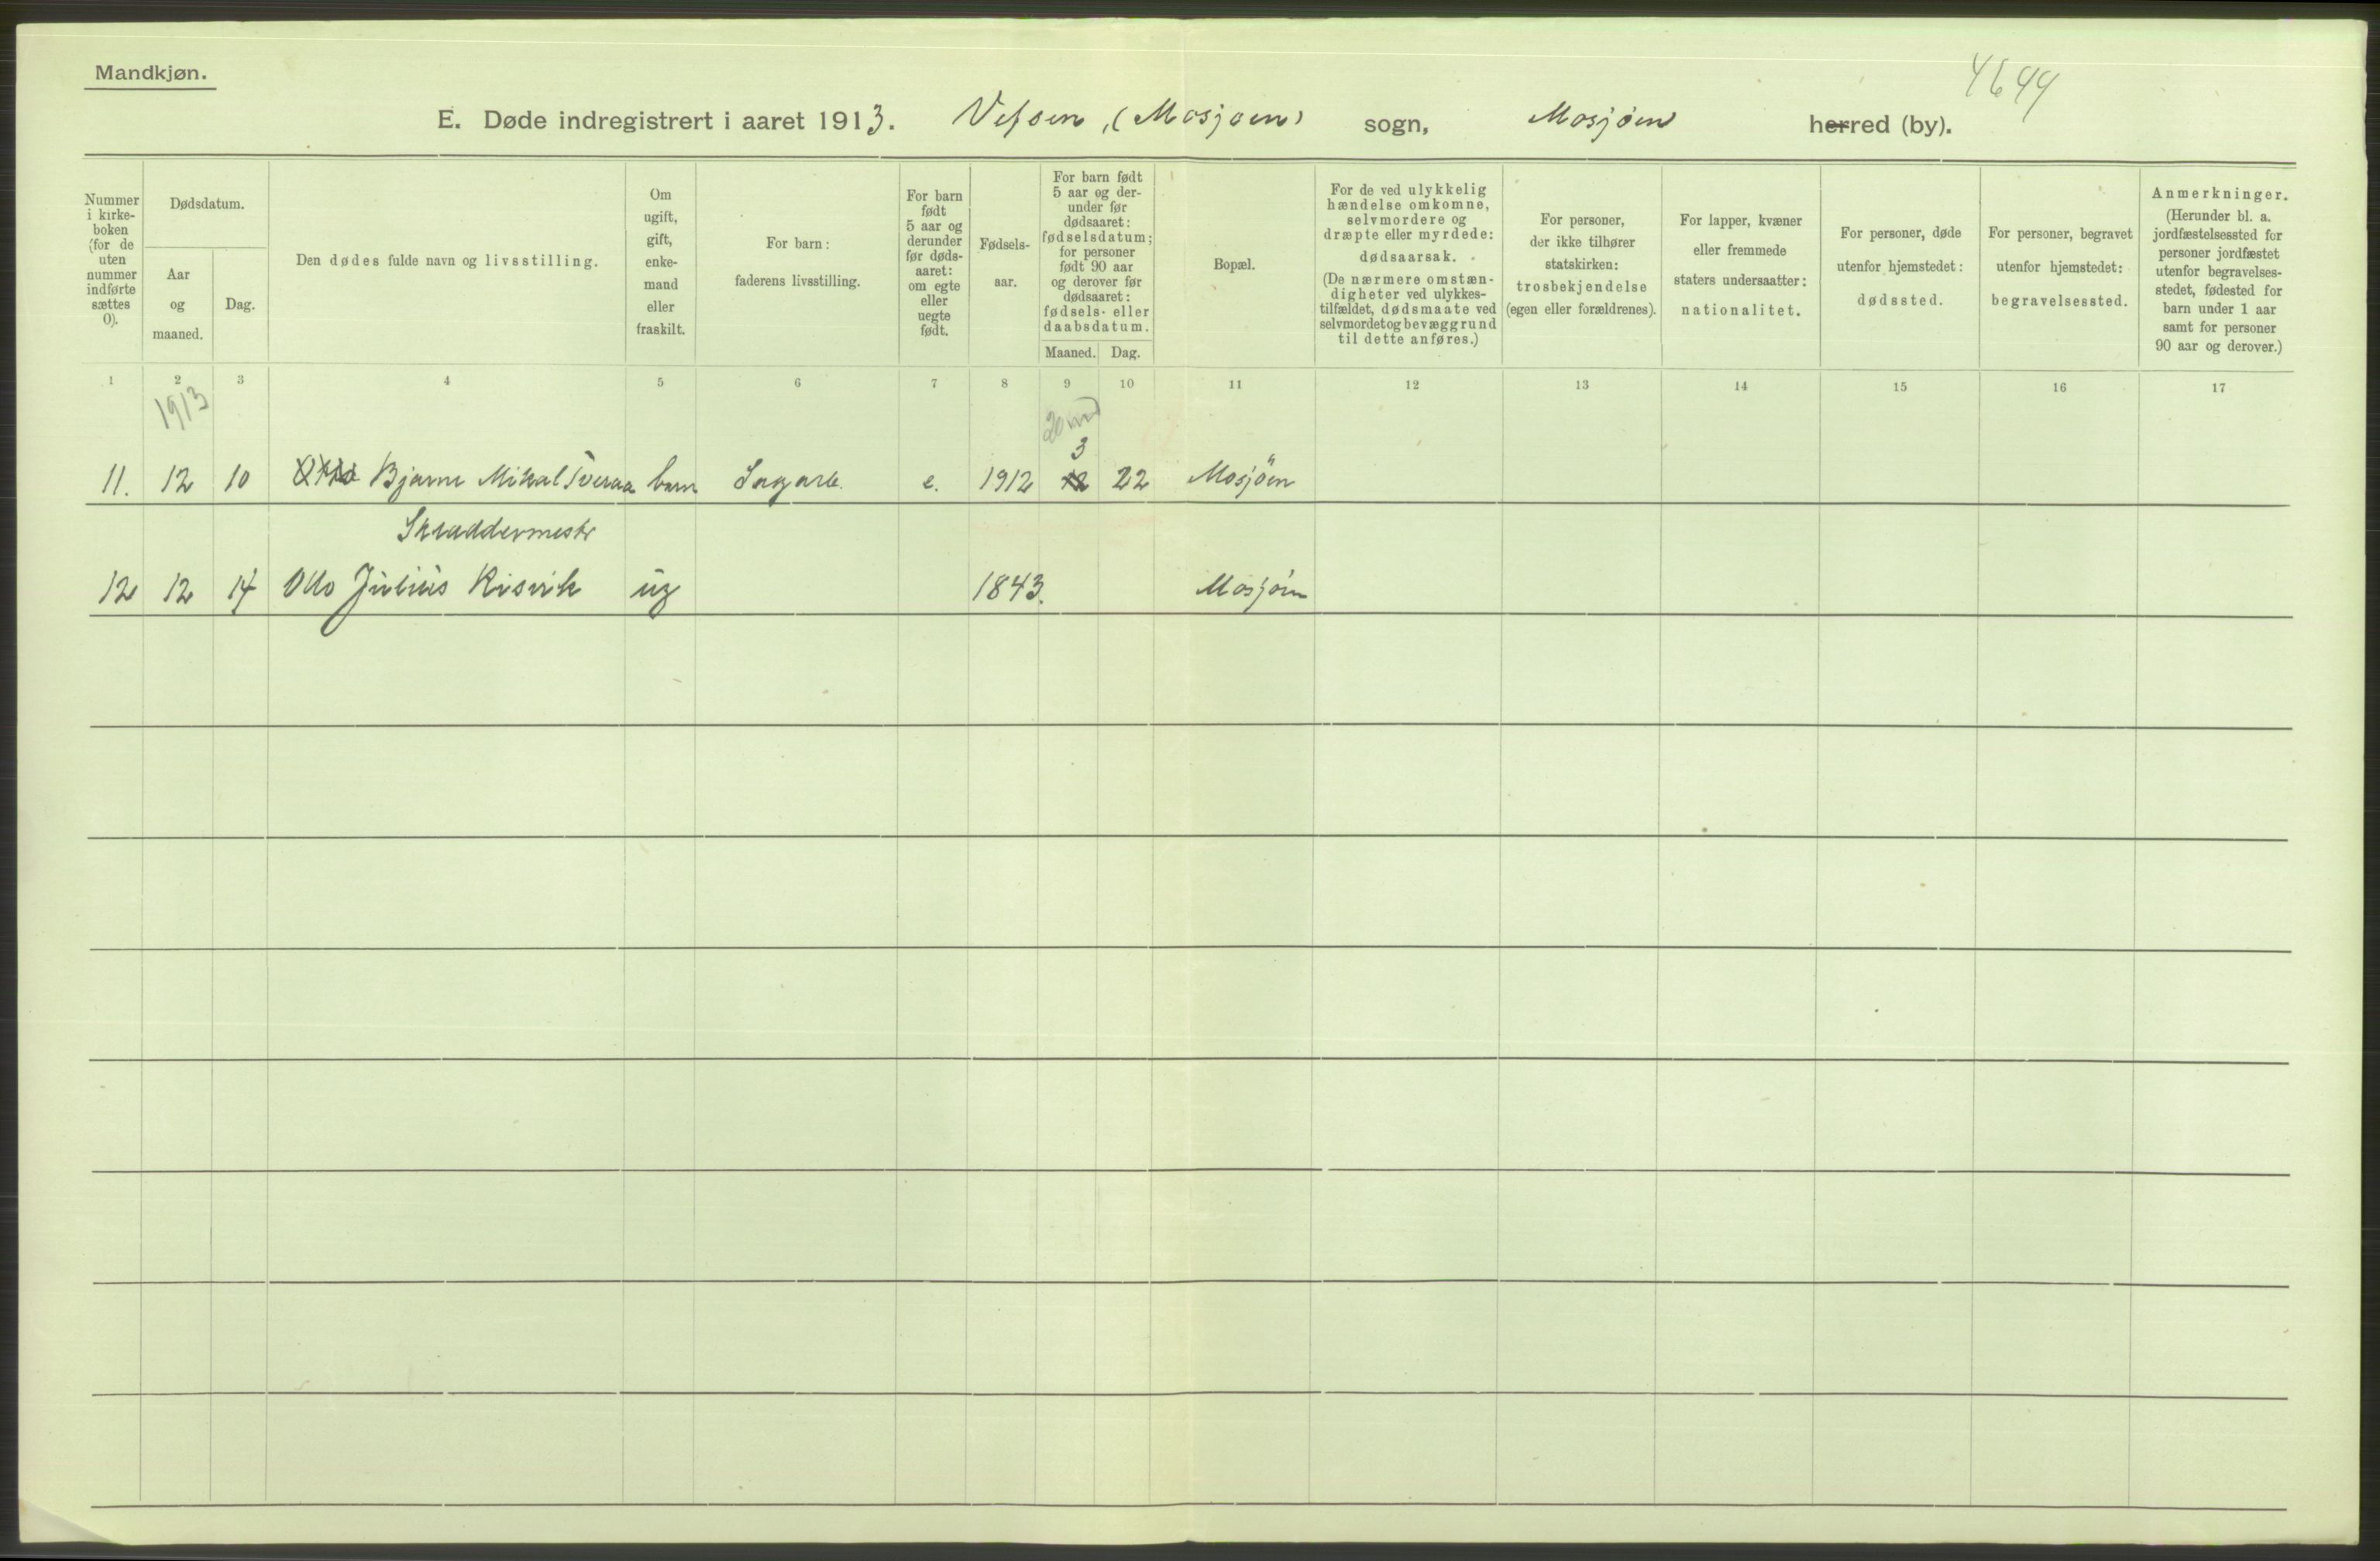 Mandkjøn.
4644
E. Døde indregistrert i aaret 1913. Vefsen, (Mosjøen) sogn, Mosjøen herred (by).
Nummer i kirke-boken (for de uten nummer indførte sættes 0).
Dødsdatum.
Aar og maaned.
Dag.
Den dødes fulde navn og livsstilling.
Om ugift, gift, enke-mand eller fraskilt.
For barn: faderens livsstilling.
For barn født 5 aar og derunder før døds-aaret: om egte eller uegte født.
Fødsels-aar.
For barn født 5 aar og der-under før dødsaaret: fødselsdatum; for personer født 90 aar og derover før dødsaaret: fødsels- eller daabsdatum.
Maaned. Dag.
Bopæl.
For de ved ulykkelig hændelse omkomne, selvmordere og dræpte eller myrdede: dødsaarsak.
(De nærmere omstæn-digheter ved ulykkes-tilfældet, dødsmaate ved selvmord et og bevæggrund til dette anføres.)
For personer, der ikke tilhører statskirken: trosbekjendelse (egen eller forældrenes).
For lapper, kvæner eller fremmede staters undersaatter: nationalitet.
For personer, døde utenfor hjemstedet: dødssted.
For personer, begravet utenfor hjemstedet: begravelsessted.
Anmerkninger.
(Herunder bl. a. jordfæstelsessted for personer jordfæstet utenfor begravelses-stedet, fødested for barn under 1 aar samt for personer 90 aar og derover.)
1 2 3 4 5 6 7 8 9 10 11 12 13 14 15 16 17
1913
20 m
3
11. 12 10 Otto Bjarne Mikal Tveraa barn Sagarb. e. 1912 12 22 Mosjöen
Skræddermestr
12 12 14 Otto Julius Risvik ug 1843. Mosjöen